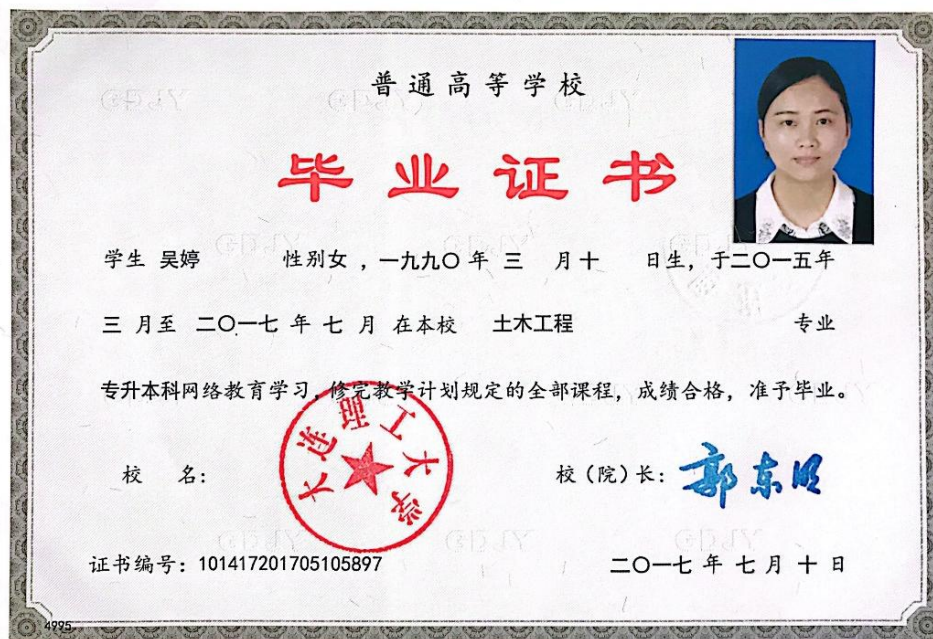 普通高等学校
毕业证书
学生 吴婷 性别女，一九九〇年 三 月十 日生，于二〇一五年
三 月至 二〇一七 年 七 月 在本校 土木工程 专业
专升本科网络教育学习，修完教学计划规定的全部课程，成绩合格，准予毕业。
大连理工大学
校 名： 校（院）长：郭东明
证书编号：101417201705105897 二〇一七 年 七 月 十 日
4995